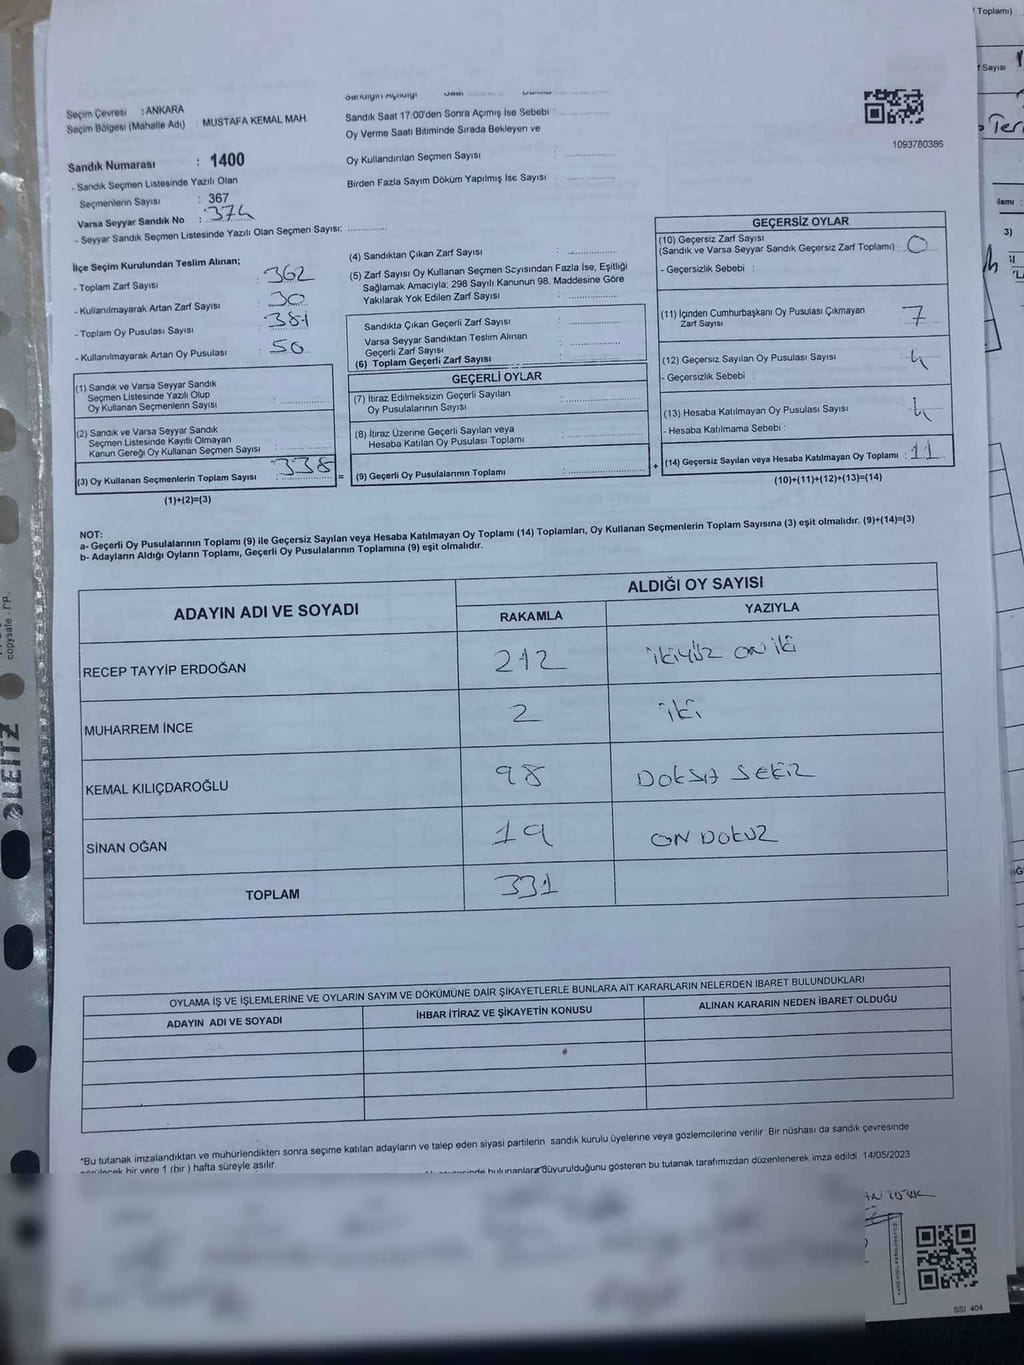 Toplamı)
Sayısı
Seçim Çevresi : ANKARA
Seçim Bölgesi (Mahalle Adı) : MUSTAFA KEMAL MAH.
Sandık Saat 17:00'den Sonra Açılmış İse Sebebi :
Oy Verme Saati Bitiminde Sırada Bekleyen ve
Oy Kullandırılan Seçmen Sayısı :
Birden Fazla Sayım Döküm Yapılmış İse Sayısı :
1093780386
Sandık Numarası : 1400
- Sandık Seçmen Listesinde Yazılı Olan
Seçmenlerin Sayısı : 367
Varsa Seyyar Sandık No : 374
- Seyyar Sandık Seçmen Listesinde Yazılı Olan Seçmen Sayısı:
İlçe Seçim Kurulundan Teslim Alınan;
- Toplam Zarf Sayısı : 362
- Kullanılmayarak Artan Zarf Sayısı : 30
- Toplam Oy Pusulası Sayısı : 381
- Kullanılmayarak Artan Oy Pusulası : 50
(1) Sandık ve Varsa Seyyar Sandık
Seçmen Listesinde Yazılı Olup
Oy Kullanan Seçmenlerin Sayısı :
(2) Sandık ve Varsa Seyyar Sandık
Seçmen Listesinde Kayıtlı Olmayan
Kanun Gereği Oy Kullanan Seçmen Sayısı :
(3) Oy Kullanan Seçmenlerin Toplam Sayısı : 338 =
(1)+(2)=(3)
(4) Sandıktan Çıkan Zarf Sayısı :
(5) Zarf Sayısı Oy Kullanan Seçmen Sayısından Fazla İse, Eşitliği
Sağlamak Amacıyla; 298 Sayılı Kanunun 98. Maddesine Göre
Yakılarak Yok Edilen Zarf Sayısı :
Sandıkta Çıkan Geçerli Zarf Sayısı :
Varsa Seyyar Sandıktan Teslim Alınan
Geçerli Zarf Sayısı :
(6) Toplam Geçerli Zarf Sayısı :
GEÇERLİ OYLAR
(7) İtiraz Edilmeksizin Geçerli Sayılan
Oy Pusulalarının Sayısı :
(8) İtiraz Üzerine Geçerli Sayılan veya
Hesaba Katılan Oy Pusulası Toplamı :
(9) Geçerli Oy Pusulalarının Toplamı : +
GEÇERSİZ OYLAR
(10) Geçersiz Zarf Sayısı
(Sandık ve Varsa Seyyar Sandık Geçersiz Zarf Toplamı) : 0
- Geçersizlik Sebebi :
(11) İçinden Cumhurbaşkanı Oy Pusulası Çıkmayan
Zarf Sayısı : 7
(12) Geçersiz Sayılan Oy Pusulası Sayısı : 4
- Geçersizlik Sebebi :
(13) Hesaba Katılmayan Oy Pusulası Sayısı : 4
- Hesaba Katılmama Sebebi :
(14) Geçersiz Sayılan veya Hesaba Katılmayan Oy Toplamı : 11
(10)+(11)+(12)+(13)=(14)
NOT:
a- Geçerli Oy Pusulalarının Toplamı (9) ile Geçersiz Sayılan veya Hesaba Katılmayan Oy Toplamı (14) Toplamları, Oy Kullanan Seçmenlerin Toplam Sayısına (3) eşit olmalıdır. (9)+(14)=(3)
b- Adayların Aldığı Oyların Toplamı, Geçerli Oy Pusulalarının Toplamına (9) eşit olmalıdır.
ADAYIN ADI VE SOYADI
ALDIĞI OY SAYISI
RAKAMLA
YAZIYLA
RECEP TAYYİP ERDOĞAN 212 İKİYÜZ ON İKİ
MUHARREM İNCE 2 İKİ
KEMAL KILIÇDAROĞLU 98 DOKSA SEKİZ
SİNAN OĞAN 19 ON DOKUZ
TOPLAM 331
OYLAMA İŞ VE İŞLEMLERİNE VE OYLARIN SAYIM VE DÖKÜMÜNE DAİR ŞİKAYETLERLE BUNLARA AİT KARARLARIN NELERDEN İBARET BULUNDUKLARI
ADAYIN ADI VE SOYADI
İHBAR İTİRAZ VE ŞİKAYETİN KONUSU
ALINAN KARARIN NEDEN İBARET OLDUĞU
*Bu tutanak imzalandıktan ve mühürlendikten sonra seçime katılan adayların ve talep eden siyasi partilerin sandık kurulu üyelerine veya gözlemcilerine verilir. Bir nüshası da sandık çevresinde
bir yere 1 (bir) hafta süreyle asılır.
bulunanlara duyurulduğunu gösteren bu tutanak tarafımızdan düzenlenerek imza edildi. 14/05/2023
SSI 404
LEITZ
copysafe